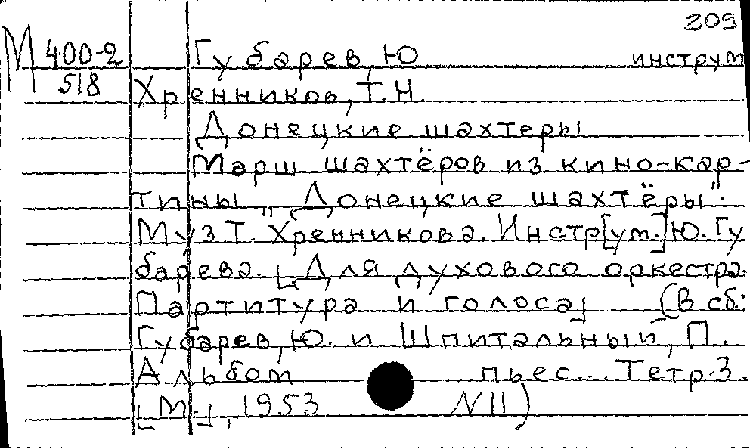 209
М 400-2 Губарев, Ю инструм
518 Хренников, Т.Н.
Донецкие шахтеры
Марш шахтёров из кино-кар-
тины „Донецкие шахтёры".
Муз Т. Хренникова. Инстр[ум.] Ю. Гу
барева. [Для духового оркестра.
Партитура и голоса] (В сб:
Губарев, Ю. и Шпитальный, П.
Альбом пьес... Тетр 3.
[М], 1953 N 11)